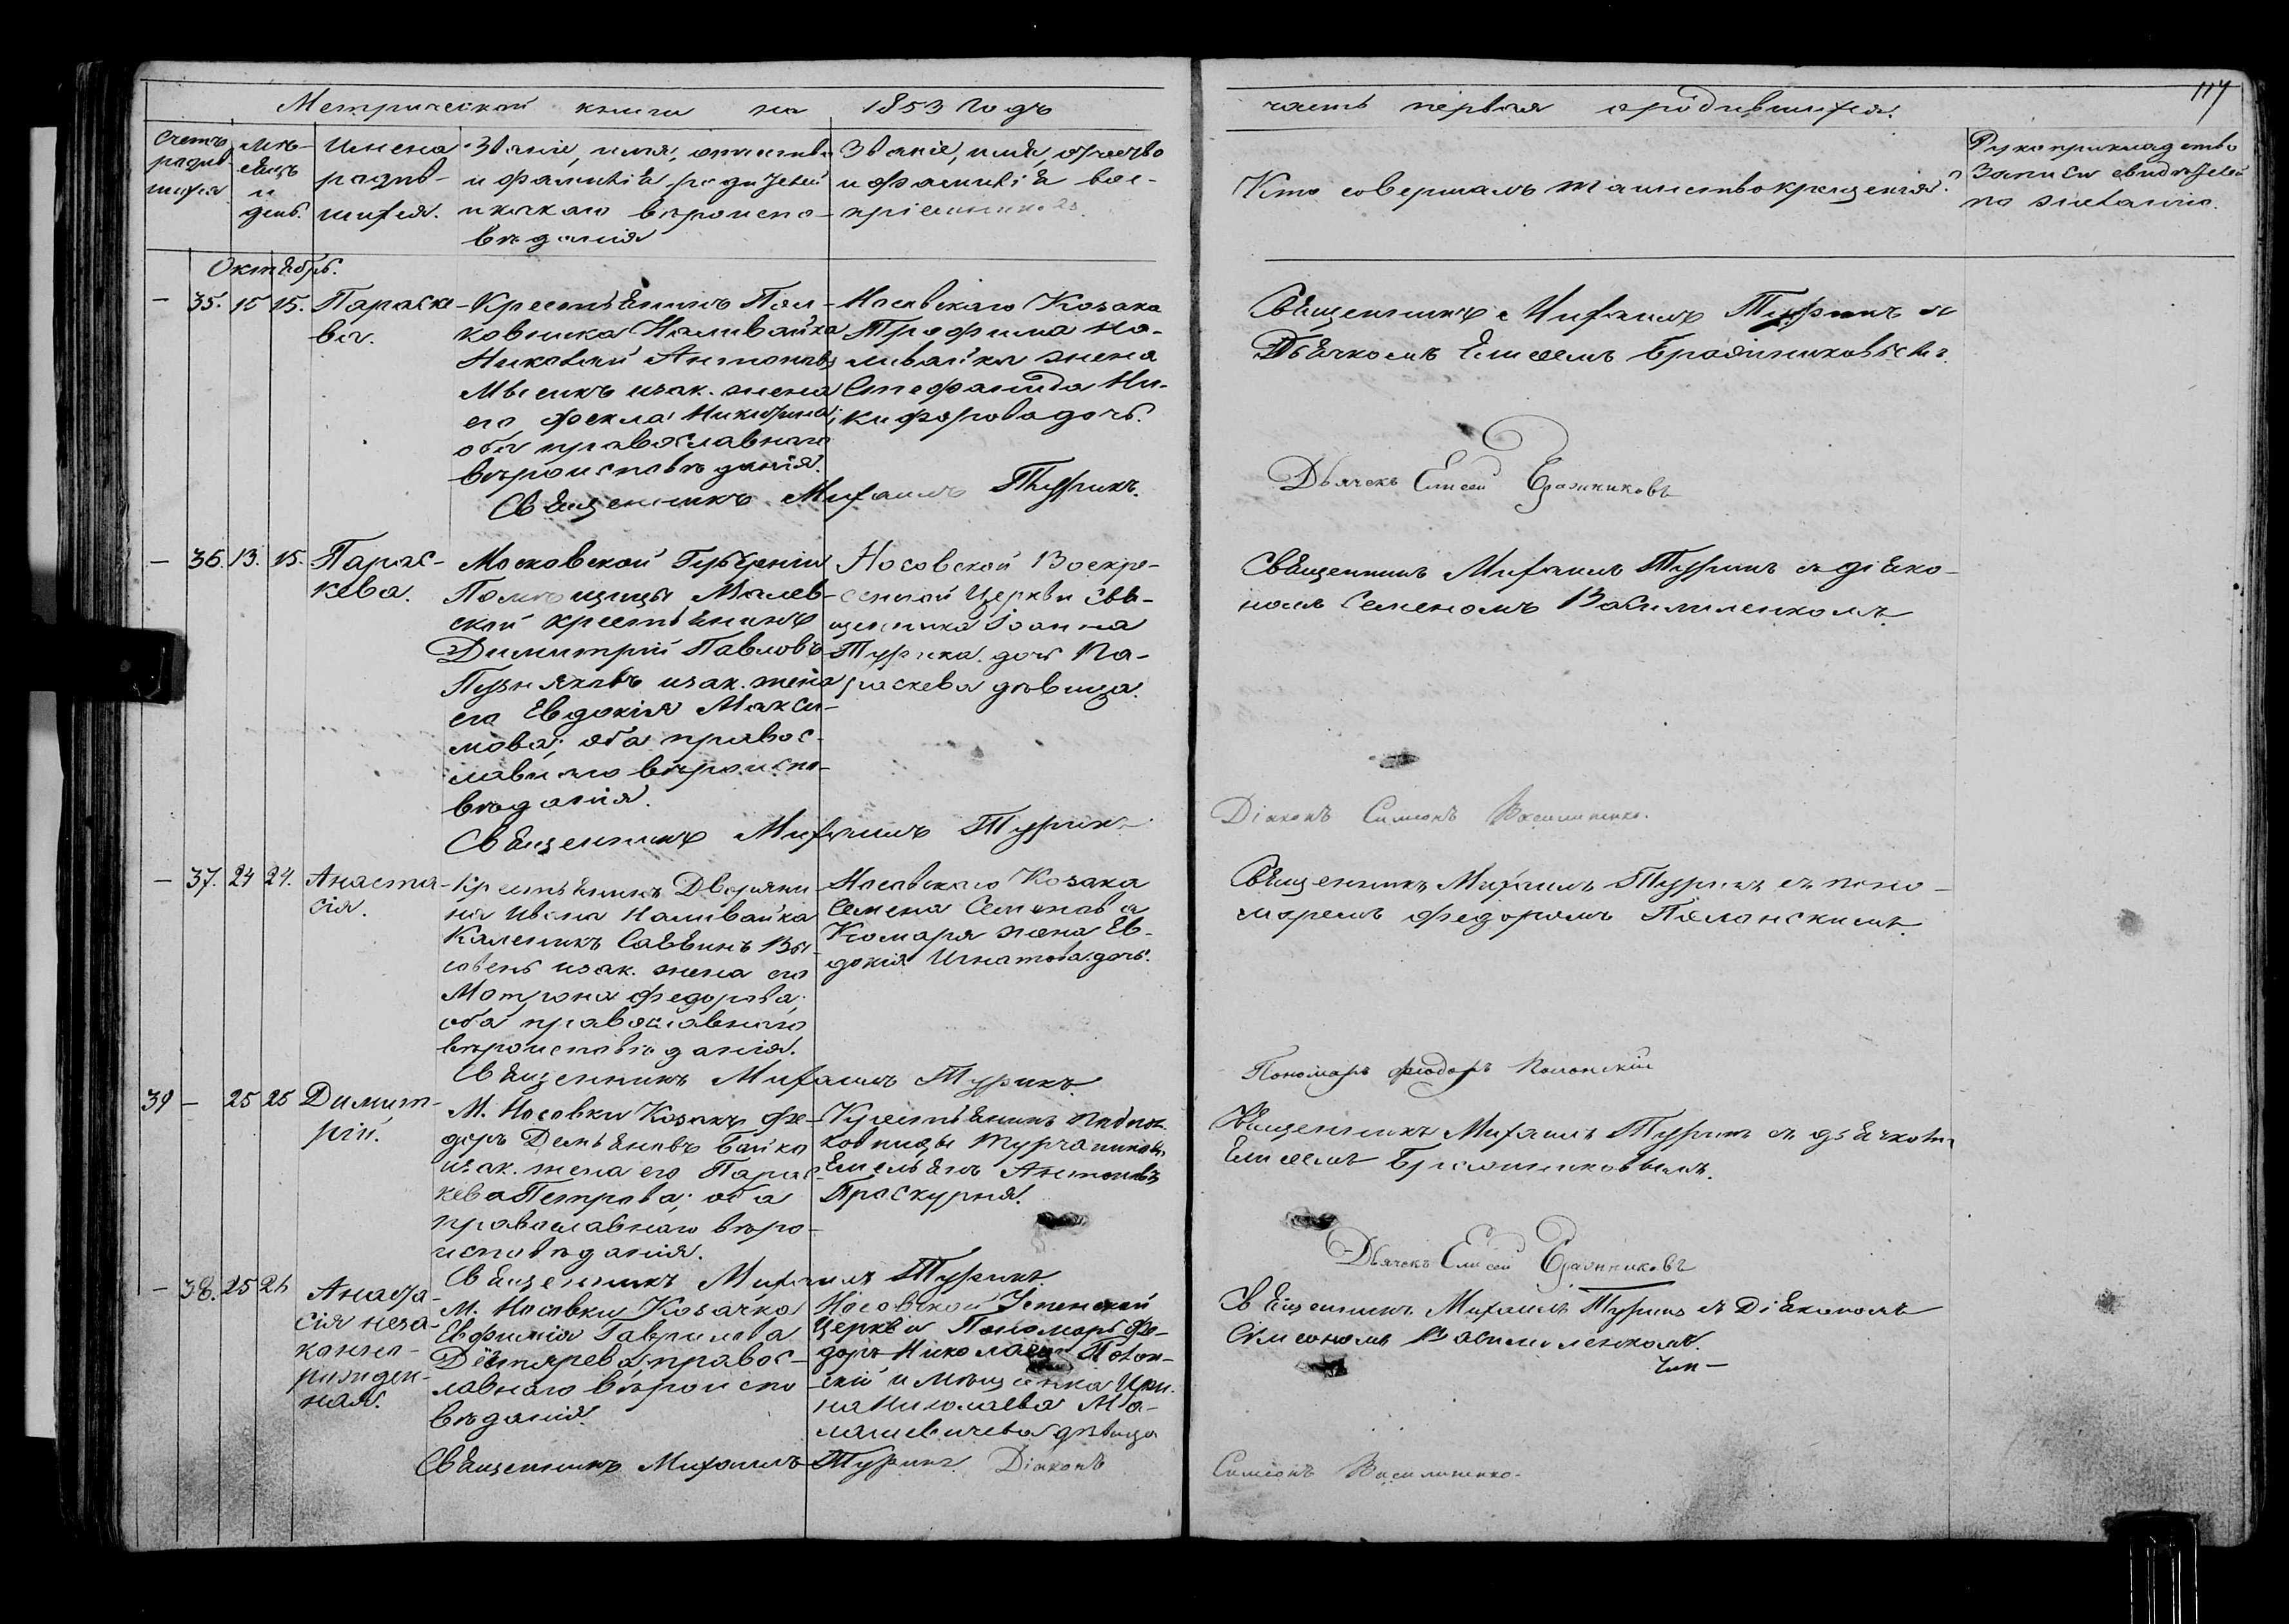 Метрической книги на 1853 годъ
часть первая о родившихся.
117
Счетъ родив-шихся.
Мѣ-сяцъ и день.
Имена родив-шихся.
Званіе, имя, отчество и фамилія родителей и какаго вѣроиспо-вѣданія
Званіе, имя, отчество и фамилія вос-пріемниковъ.
Кто совершалъ таинство крещенія?
Рукоприкладство записи свидѣтелей по желанію.
Октябрь.
— 35. 15 15. Параске-
ва.
Крестьянинъ Пол-
ковника Наливайка
Николай Антоновъ
Мысикъ изак. жена
его Фекла Никифорова;
оба православнаго
вѣроисповѣданія.
Носовскаго Козака
Трофима На-
ливайка жена
Стефанида Ни-
кифорова дочь.
Священникъ Михаилъ Турикъ.
Священникъ Михаилъ Турикъ съ
Дьячкомъ Елисеемъ Бражниковымъ.
Дьячекъ Елисей Бражниковъ
— 36. 13. 15. Парас-
кева.
Московской Губерніи
Помѣщицы Малев-
ской крестьянинъ
Димитрій Павловъ
Пузняковъ изак. жена
его Евдокія Макси-
мова; оба правос-
лавнаго вѣроиспо-
вѣданія.
Носовской Воскре-
сенской Церкви Свя-
щенника Іоанна
Турика дочь Па-
раскева дѣвица.
Священникъ Михаилъ Турикъ
Священникъ Михаилъ Турикъ съ діяко-
номъ Семеномъ Василиленкомъ.
Діаконъ Симеонъ Василиленко.
— 37. 24 24. Анаста-
сія.
Крестьянинъ Дворяни-
на Ивана Наливайка
Каленикъ Саввинъ Вы-
совень изак. жена его
Мотрона Федорова;
оба православнаго
вѣроисповѣданія.
Носовскаго Козака
Семена Семенова
Комаря жена Ев-
докія Игнатова дочь.
Священникъ Михаилъ Турикъ.
Священникъ Михаилъ Турикъ съ поно-
маремъ Федоромъ Полонскимъ.
Пономарь Фіодоръ Полонскій
39 — 25 25 Димит-
рій.
М. Носовки Козакъ Фе-
доръ Демьяновъ Байко
изак. жена его Парас-
кева Петрова; оба
православнаго вѣро-
исповѣданія.
Крестьянинъ Подпол-
ковницы Турчаниновы
Емельянъ Антоновъ
Проскурня.
Священникъ Михаилъ Турикъ.
Священникъ Михаилъ Турикъ съ дьячкомъ
Елисеемъ Бражниковымъ.
Дьячекъ Елисей Бражниковъ
— 38. 25 26 Анаста-
сія неза-
конно-
рожден-
ная.
М. Носовки Козачка
Евфимія Гаврилова
Дегтярева правос-
лавнаго вѣроиспо-
вѣданія.
Носовской Успенской
Церкви Пономарь Фе-
доръ Николаевъ Полон-
скій и Мѣщанка Ири-
на Николаева Ма-
лашевичева дѣвица
Священникъ Михаилъ Турикъ. Діаконъ
Священникъ Михаилъ Турикъ съ Діякономъ
Симеономъ Василиленкомъ.
Симеонъ Василиленко.